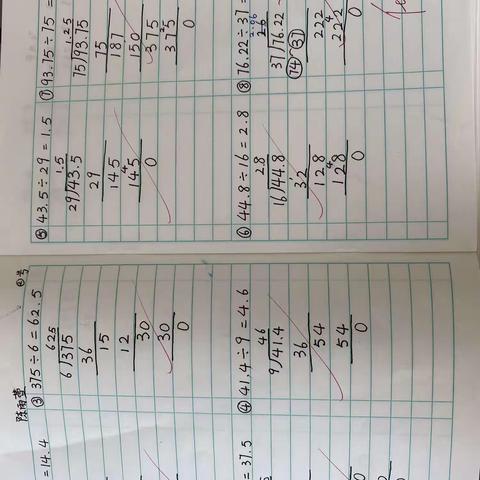 =14.4
=37.5
③ 375÷6=62.5
625
6)375
36
15
12
30
30
0
④ 41.4÷9=4.6
46
9)41.4
36
54
54
0
⑤ 43.5÷29=1.5
1.5
29)43.5
29
14.5
14.5
0
⑥ 44.8÷16=2.8
28
16)44.8
32
128
128
0
⑦ 93.75÷75=
1.25
75)93.75
75
187
150
375
375
0
⑧ 76.22÷37=
2.06
37)76.22
74
222
222
0